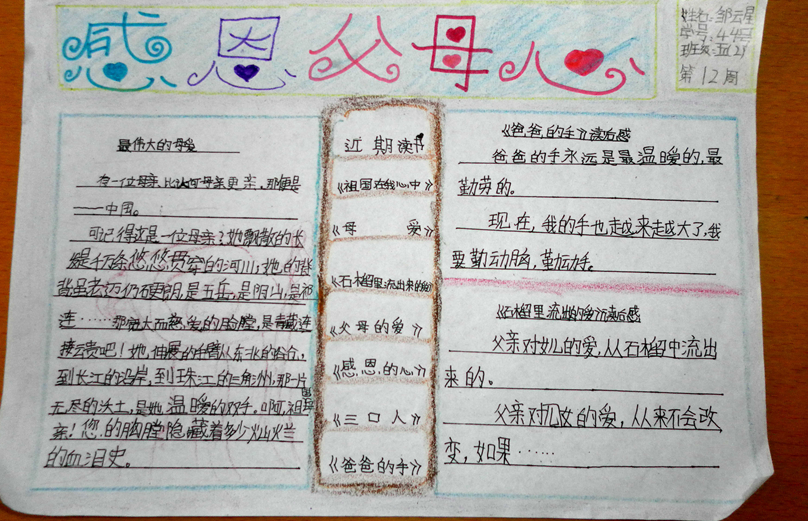 感恩父母心
姓名:邹云星
学号:44号
班级:五(2)
第12周
最伟大的母爱
有一位母亲,比认何母亲更亲,那便是
——中国。
可记得这是一位母亲?她飘散的长
缇千万条悠悠贯穿的河川;她的背
背虽老迈仍硬朗,是五岳,是阴山,是祁
连……那宽大而慈爱的脸膛,是青藏连
接云贵吧!她伸展的手臂从东北的
到长江的沿岸,到珠江的三角洲,那一片
无尽的沃土,是她温暖的双手。啊,祖国母
亲!您的胸膛隐藏着多少灿烂
的血泪史。
近期读书
《祖国在我心中》
《母爱》
《石榴里流出来的爱》
《父母的爱》
《感恩的心》
《三口人》
《爸爸的手》
《爸爸的手》读后感
爸爸的手永远是最温暖的,最
勤劳的。
现在,我的手也越来越大了,我
要勤动脑,勤动手。
《石榴里流出的爱》读后感
父亲对女儿的爱,从石榴中流出
来的。
父亲对儿女的爱,从来不会改
变,如果……